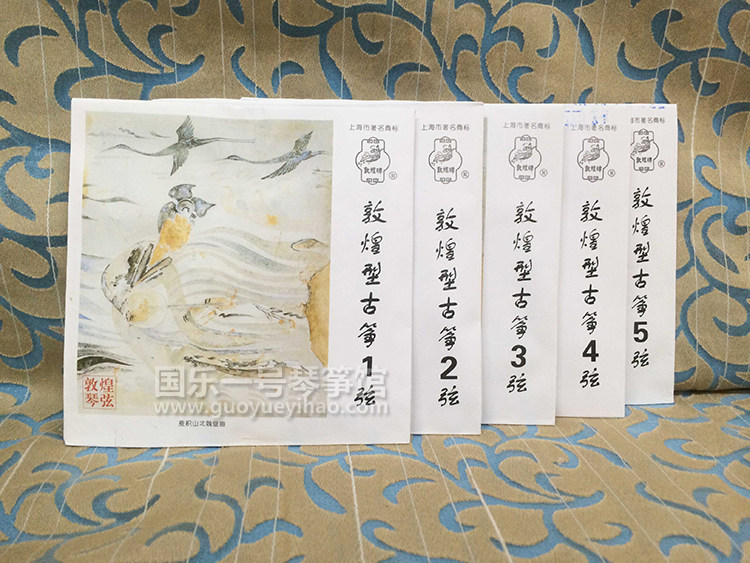 上海市著名商标
敦煌牌
®
敦煌型古筝1弦
敦煌琴弦
麦积山北魏壁画
上海市著名商标
敦煌牌
®
敦煌型古筝2弦
上海市著名商标
敦煌牌
®
敦煌型古筝3弦
上海市著名商标
敦煌牌
®
敦煌型古筝4弦
上海市著名商标
敦煌牌
敦煌型古筝5弦
国乐一号琴筝馆
www.guoyueyihao.com